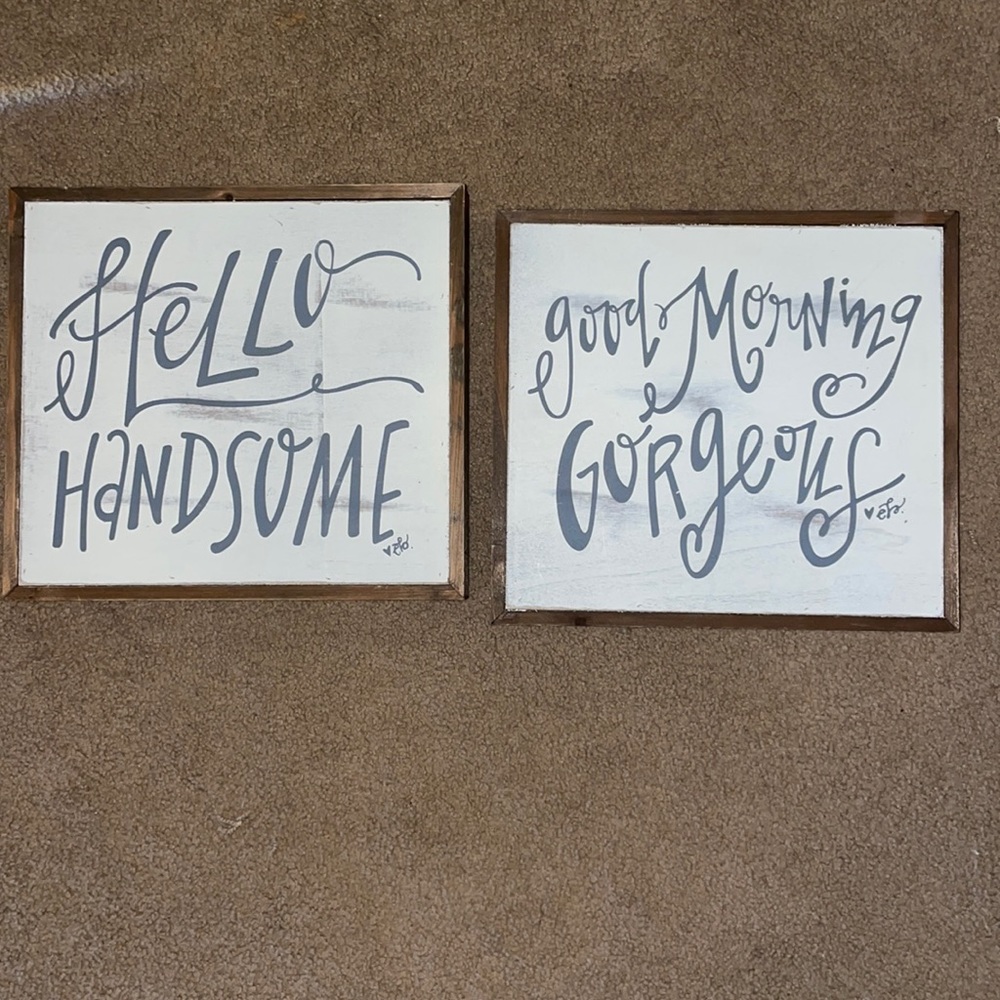 HeLLO
HaNDSOME
good MorNing
GORgeous